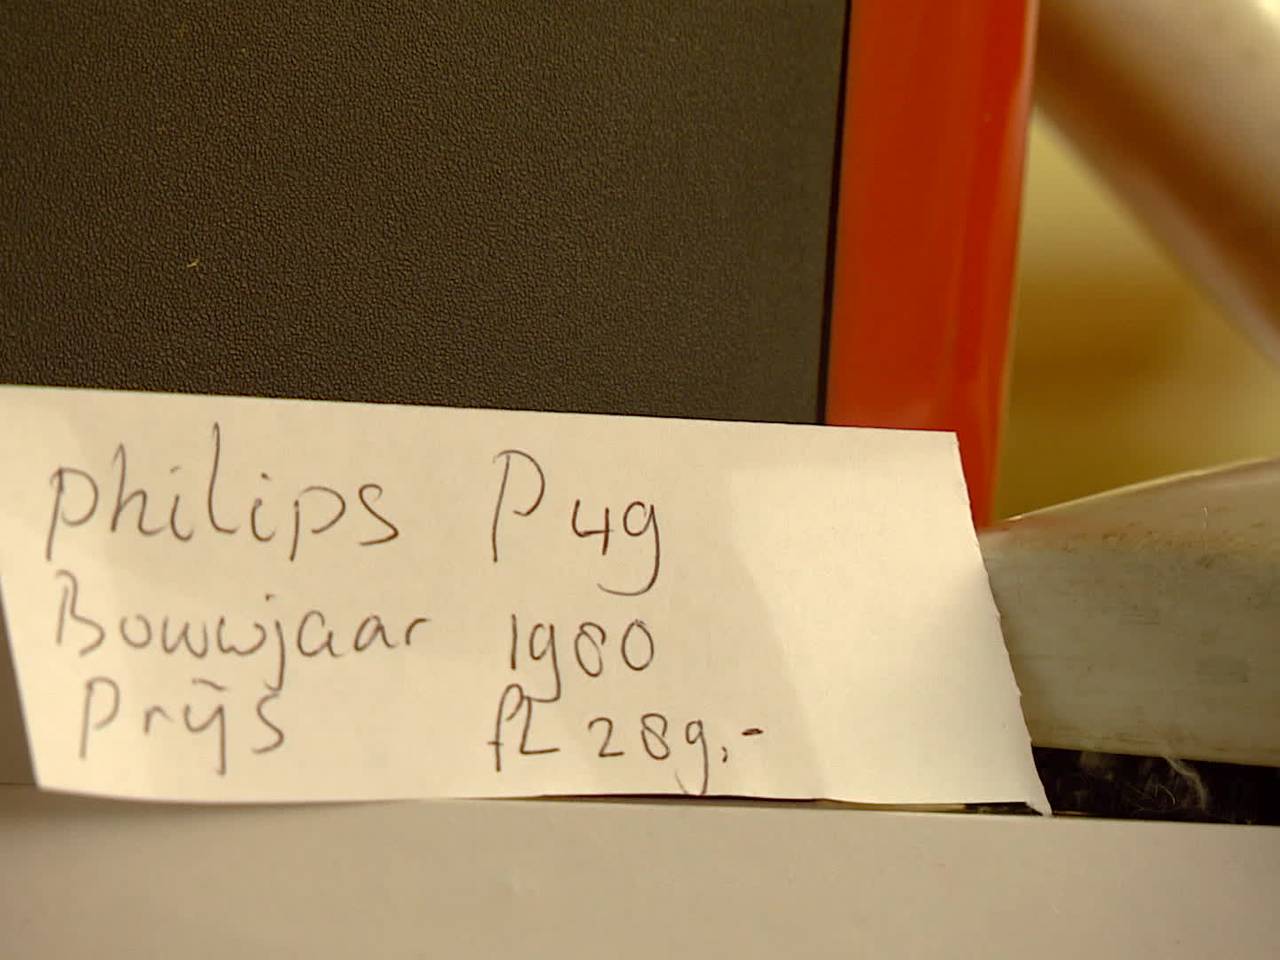 Philips P 49
Bouwjaar 1980
Prijs fl 289,-